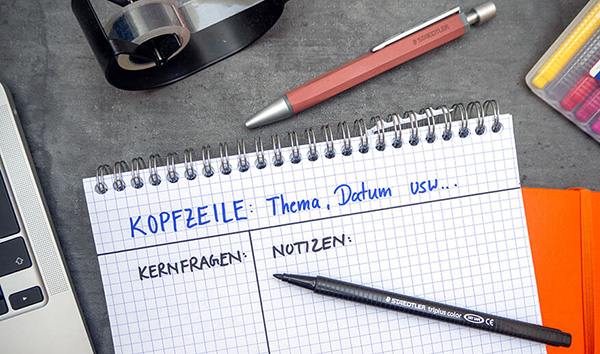 STAEDTLER
KOPFZEILE: Thema, Datum usw...
KERNFRAGEN:
NOTIZEN:
STAEDTLER triplus color